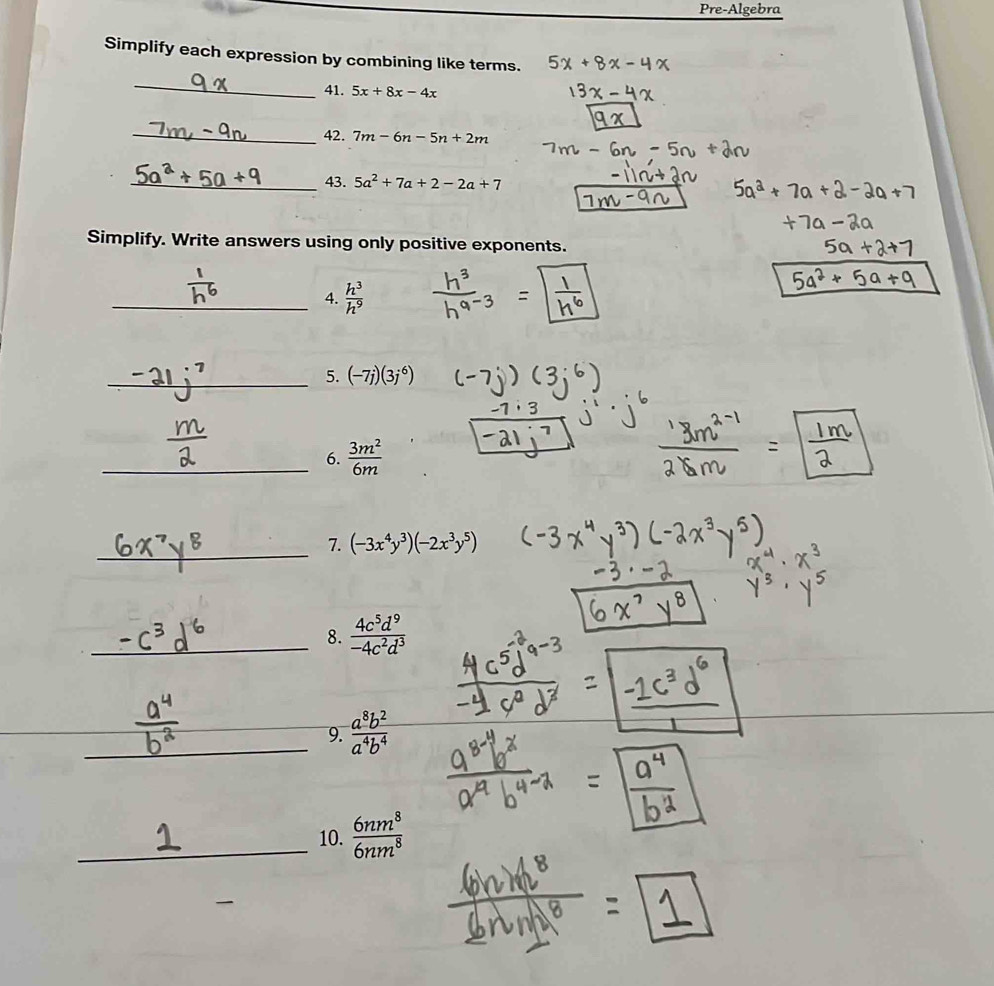 Pre-Algebra
Simplify each expression by combining like terms.
9x 41. 5x + 8x − 4x
5x + 8x − 4x
13x − 4x
9x
7m − 9n 42. 7m − 6n − 5n + 2m
7m − 6n − 5n + 2n
−11n + 2n
7m − 9n
5a² + 5a + 9 43. 5a² + 7a + 2 − 2a + 7
5a² + 7a + 2 − 2a + 7
+7a − 2a
5a + 2 + 7
5a² + 5a + 9
Simplify. Write answers using only positive exponents.
1/h⁶ 4. h³/h⁹
h³/h⁹⁻³ = 1/h⁶
−21j⁷ 5. (−7j)(3j⁶)
(−7j) (3j⁶)
−7 · 3 j¹ · j⁶
−21j⁷
m/2 6. 3m²/6m
¹3m²⁻¹/26m = 1m/2
6x⁷y⁸ 7. (−3x⁴y³)(−2x³y⁵)
(−3x⁴y³) (−2x³y⁵)
−3 · −2 x⁴ · x³
y³ · y⁵
6x⁷y⁸
−c³d⁶ 8. 4c⁵d⁹/−4c²d³
4c⁵⁻²d⁹⁻³/−4c²d³ = −1c³d⁶/1
a⁴/b² 9. a⁸b²/a⁴b⁴
a⁸⁻⁴b²/a⁴b⁴⁻² = a⁴/b²
1 10. 6nm⁸/6nm⁸
6nm⁸/6nm⁸ = 1